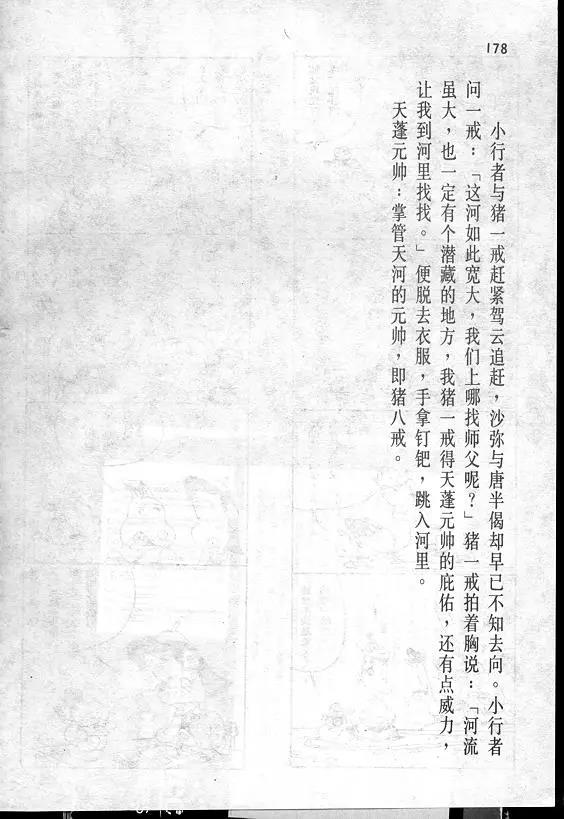 178
小行者与猪一戒赶紧驾云追赶，沙弥与唐半偈却早已不知去向。小行者
问一戒：「这河如此宽大，我们上哪找师父呢？」猪一戒拍着胸说：「河流
虽大，也一定有个潜藏的地方，我猪一戒得天蓬元帅的庇佑，还有点威力，
让我到河里找找。」便脱去衣服，手拿钉钯，跳入河里。
天蓬元帅：掌管天河的元帅，即猪八戒。